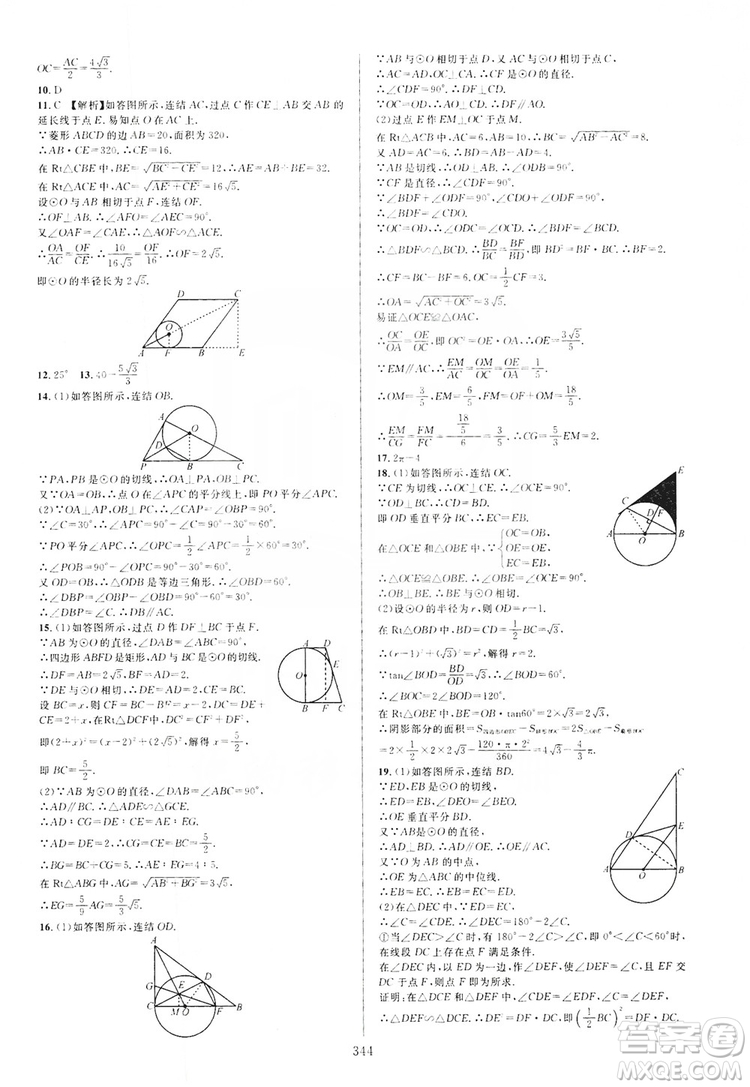 OC=AC/2=4√3/3.
10. D
11. C 【解析】如答图所示,连结 AC,过点 C 作 CE⊥AB 交 AB 的
延长线于点 E,易知点 O 在 AC 上.
∵菱形 ABCD 的边 AB=20,面积为 320,
∴AB·CE=320.∴CE=16.
在 Rt△CBE 中,BE=√(BC²-CE²)=12,∴AE=AB+BE=32.
在 Rt△ACE 中,∴AC=√(AE²+CE²)=16√5.
设⊙O 与 AB 相切于点 F,连结 OF.
∴OF⊥AF,∴∠OFA=∠AEC=90°.
又∵∠OAF=∠CAE,∴△AOF∽△ACE.
∴OA/AC=OF/CE.∴10/(16√5)=OF/16.∴OF=2√5.
即⊙O 的半径长为 2√5.
D C O A F B E
12. 25° 13. 40-5√3/3
14. (1)如答图所示,连结 OB.
A O P B C
∵PA,PB 是⊙O 的切线,∴OA⊥AP,OB⊥BP.
又∵OA=OB,∴点 O 在∠APC 的平分线上,即 PO 平分∠APC.
(2)∵OA⊥AP,OB⊥BP,∴∠CAP=∠OBP=90°.
∵∠C=30°,∴∠APC=90°-∠C=90°-30°=60°.
∵PO 平分∠APC,∴∠OPC=1/2∠APC=1/2×60°=30°.
∴∠POB=90°-∠OPC=90°-30°=60°.
又∵OD=OB,∴△ODB 是等边三角形,∴∠OBD=60°.
∴∠DBP=∠OBP-∠OBD=90°-60°=30°.
∴∠DBP=∠C.∴DB∥AC.
15. (1)如答图所示,过点 D 作 DF⊥BC于点 F.
∵AB 为⊙O 的直径,∴∠ABF=∠BAD=90°.
∴四边形 ABFD 是矩形,AD 与 BC 是⊙O 的切线.
∴DF=AB=2√5,BF=AD=2.
∵DE 与⊙O 相切,∴DE=AD=2,CE=BC.
设 BC=x,则 CF=BC-BF=x-2,DC=DE+CE=2+x.
在 Rt△DCF 中,DC²=CF²+DF²,
即(2+x)²=(x-2)²+(2√5)²,解得 x=5/2,
即 BC=5/2.
(2)∵AB 为⊙O 的直径,∴∠DAB=∠ABC=90°.
∴AD∥BC.∴△ADE∽△GCE.
∴AD/CG=DE/CE,AE/EG=DE/CE.
∵AD=DE=2,∴CG=CE=BC=5/2.
∴BG=BC+CG=5,AE/EG=4/5.
在 Rt△ABG 中,AG=√(AB²+BG²)=3√5.
∴EG=5/9AG=5√5/3.
16. (1)如答图所示,连结 OD.
A G E D C M O F B
∵AB 与⊙O 相切于点 D,∴OD⊥AB,∴∠ODB=90°.
∴AC⊥BC,∴CF 是⊙O 的直径.
∴∠CDF=90°,…∴DF∥AO.
(2)过点 E 作 EM⊥OC 于点 M.
在 Rt△ACB 中,AC=6,AB=10,∴BC=√(AB²-AC²)=8.
∵AB 是切线,∴OD⊥AB,∴∠ODB=90°.
∵CF 是直径,∴∠CDF=90°.
∴∠BDF+∠ODF=90°,∠CDO+∠ODF=90°.
∵OC=OD,∴∠ODC=∠OCD,∴∠BDF=∠OCD.
∴△BDF∽△BCD.∴BD/BC=BF/BD,即BD²=BF·BC.
∴CF=BC-BF=6.∴OC=1/2CF=3.
∴OA=√(AC²+OC²)=3√5.
易证△OCE≌△OAC.
∴OC/OA=OE/OC,即 OC²=OE·OA.∴OE=3√5/5.
∵EM∥AC,∴EM/AC=OM/OC=OE/OA=1/5.
∴OM=3/5,EM=6/5,FM=OF+OM=18/5.
∴EM/CG=FM/FC=(18/5)/6=3/5.∴CG=5/3EM=2.
17. 2π-4
18. (1)如答图所示,连结 OC.
∵CE 为切线,∴OC⊥CE.∴∠OCE=90°.
∵OD⊥BC,∴CD=BD,
即 OD 垂直平分 BC,∴EC=EB.
在△OCE 和△OBE 中,{OC=OB, OE=OE, EC=EB,
∴△OCE≌△OBE.∴∠OBE=∠OCE=90°.
∴OB⊥BE.∴BE 与⊙O 相切.
(2)设⊙O 的半径为 r,则 OD=r-1.
在 Rt△OBD 中,BD=CD=1/2BC=√3,
∴(r-1)²+(√3)²=r²,解得 r=2.
∵tan∠BOD=BD/OD=√3,∴∠BOD=60°.
∴∠BOC=2∠BOD=120°.
在 Rt△OBE 中,BE=OB·tan60°=2×√3=2√3.
∴阴影部分的面积=S四边形OBEC-S扇形BOC=2S△OBE-S扇形BOC
=2×1/2×2×2√3-120·π·2²/360=4√3-4/3π.
E C D F A O B
19. (1)如答图所示,连结 BD.
∵ED,EB 是⊙O 的切线,
∴ED=EB,∠DEO=∠BEO.
∴OE 垂直平分 BD.
又∵AB是⊙O 的直径,
∴AD⊥BD.∴AD∥OE,即 OE∥AC.
又∵O 为 AB 的中点,
∴OE 为△ABC 的中位线,
∴BE=EC.∴ED=EC.
(2)在△DEC 中,∵ED=EC,
∴∠C=∠CDE.∴∠DEC=180°-2∠C.
①当∠DEC>∠C 时,有 180°-2∠C>∠C,即 0°<∠C<60°时,
在线段 DC 上存在点 F 满足条件.
在∠DEC 内,以 ED 为一边,作∠DEF=∠C,
EF 交 DC 于点 F,则点 F 即为所求.
证明:在△DCE 和△DEF 中,
∵∠CDE=∠EDF,∠C=∠DEF,∴△DEF∽△DCE.
∴DE/DF=DC/DE.∴DE²=DF·DC,即(1/2BC)²=DF·DC.
C E D A O B
344
答案圈
MXQE.COM